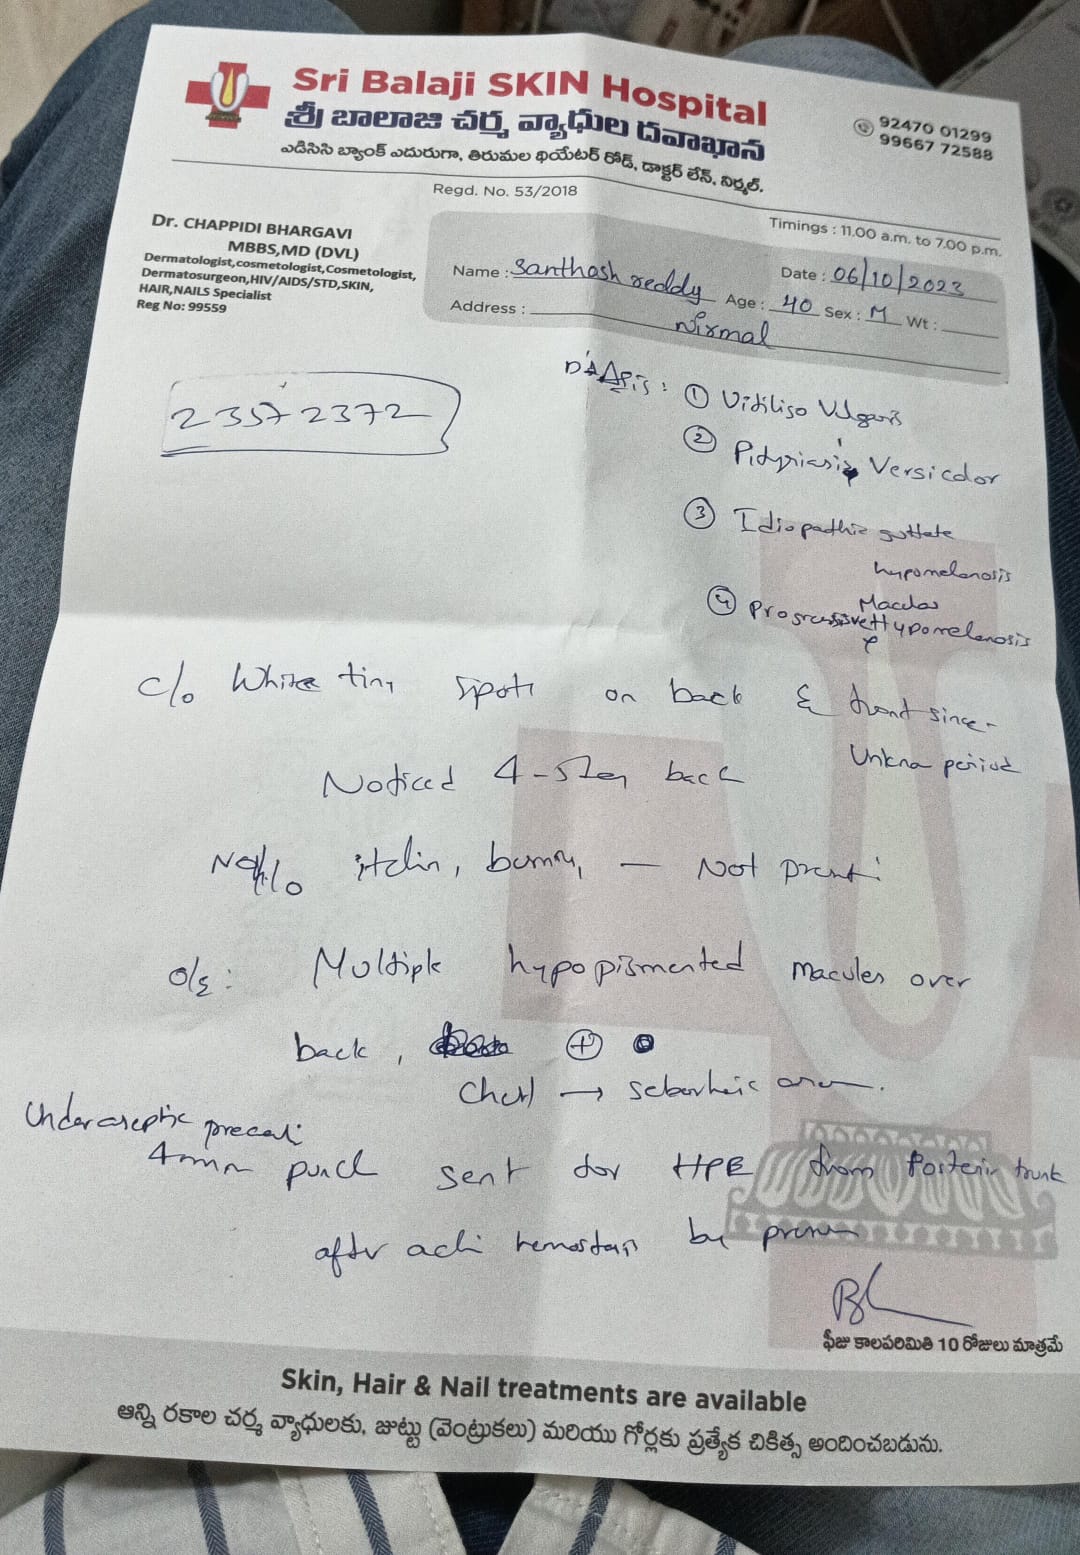 Sri Balaji SKIN Hospital
శ్రీ బాలాజి చర్మ వ్యాధుల దవాఖాన
ఎడిసిసి బ్యాంక్ ఎదురుగా, తిరుమల థియేటర్ రోడ్, డాక్టర్ లేన్, నిర్మల్.
92470 01299
99667 72588
Regd. No. 53/2018
Timings : 11.00 a.m. to 7.00 p.m.
Dr. CHAPPIDI BHARGAVI
MBBS,MD (DVL)
Dermatologist,cosmetologist,Cosmetologist,
Dermatosurgeon,HIV/AIDS/STD,SKIN,
HAIR,NAILS Specialist
Reg No: 99559
Name : Santhosh reddy Age : 40 Sex : M Wt :
Date : 06/10/2023
Address : Nirmal
23572372
① Vitiligo Vulgaris
② Pityriasis Versicolor
③ Idiopathic guttate
hypomelanosis
④ Progressive Macular
Hypomelanosis
c/o White tiny spots on back & front since
Unkna period
Noticed 4-5 day back
itchin, burning, — Not present
o/e : Multiple hypopigmented macules over
back, ⊕
Chest → seborrheic area.
Under aseptic precauti
4mm punch sent for HPE from Posterior trunk
after achi hemostasis by pressure
ఫీజు కాలపరిమితి 10 రోజులు మాత్రమే
Skin, Hair & Nail treatments are available
అన్ని రకాల చర్మ వ్యాధులకు, జుట్టు (వెంట్రుకలు) మరియు గోర్లకు ప్రత్యేక చికిత్స అందించబడును.